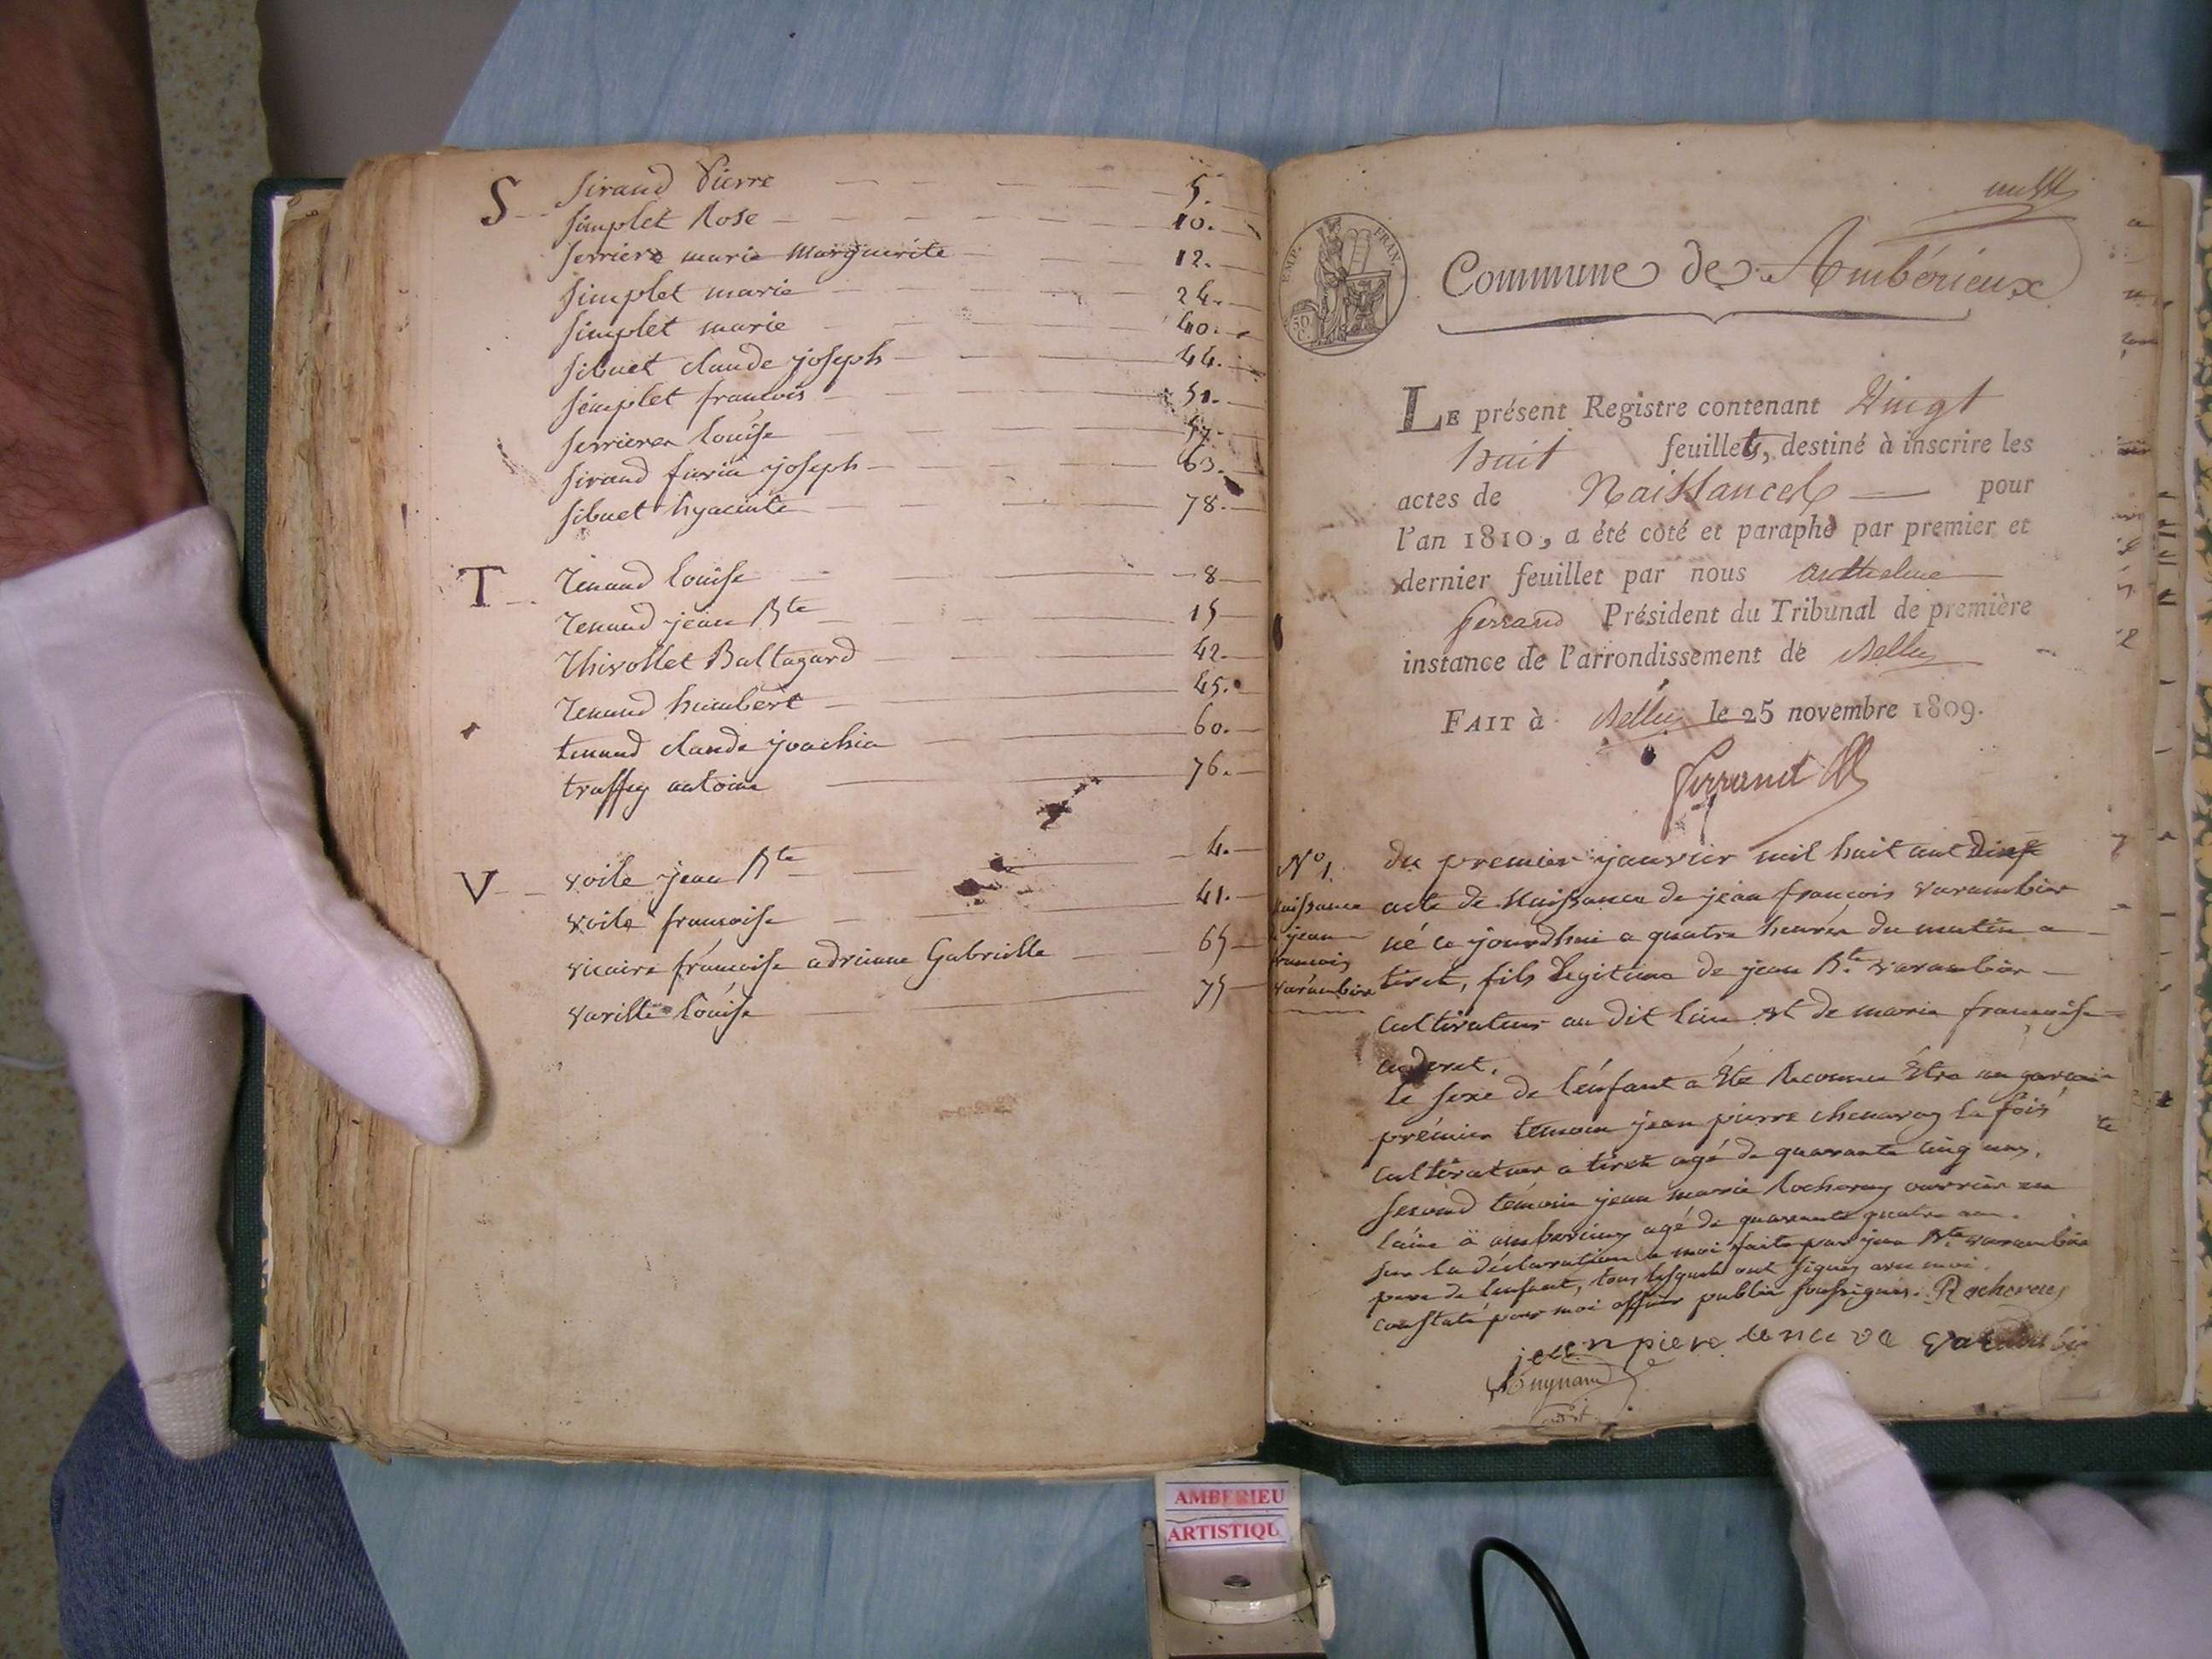 S Sirand Pierre 5.
Simplet Rose 10.
Serriere marie Marguerite 12.
Simplet marie 24.
Simplet marie 40.
Sibuet claude joseph 44.
Simplet francois 51.
Serriere louise 57.
Sirand joseph 63.
Sibuet hyacinte 78.
T Tenand louise 8
Tenand jean Bte 15
Thivollet Baltazard 42.
Tenand humbert 45.
tenand claude joachin 60.
traffey antoine 76.
V voile jean Bte 4.
voile francoise 41.
vicaire francoise adrienne Gabrielle 65
louise 75
EMP. FRAN.
50 C.
Commune de Ambérieux
LE présent Registre contenant Vingt
huit feuillets, destiné à inscrire les
actes de Naissances pour
l'an 1810, a été coté et paraphé par premier et
dernier feuillet par nous anthelme
ferrand Président du Tribunal de première
instance de l'arrondissement de Belley
FAIT à Belley le 25 novembre 1809.
Ferrand
No 1.
naissance
jean
francois
varambier
du premier janvier mil huit cent dix
acte de Naissance de jean françois varambier
né ce jourdhui a quatre heures du matin a
tiret, fils legitime de jean Bte varambier
cultivateur au dit lieu et de marie francoise
le sexe de l'enfant a été Reconnu être un garcon
prémier temoin jean pierre chenavaz la fois
cultivateur a tiret agé de quarante cinq ans,
second témoin jean marie Rocheray ouvrier en
laine a amberieux agé de quarante quatre ans.
sur la déclaration a moi faite par jean Bte varambier
pere de lenfant, tous lesquels ont signés avec moi.
constaté par moi officier public soussigné. Rocheray
jean piere
AMBERIEU
ARTISTIQU